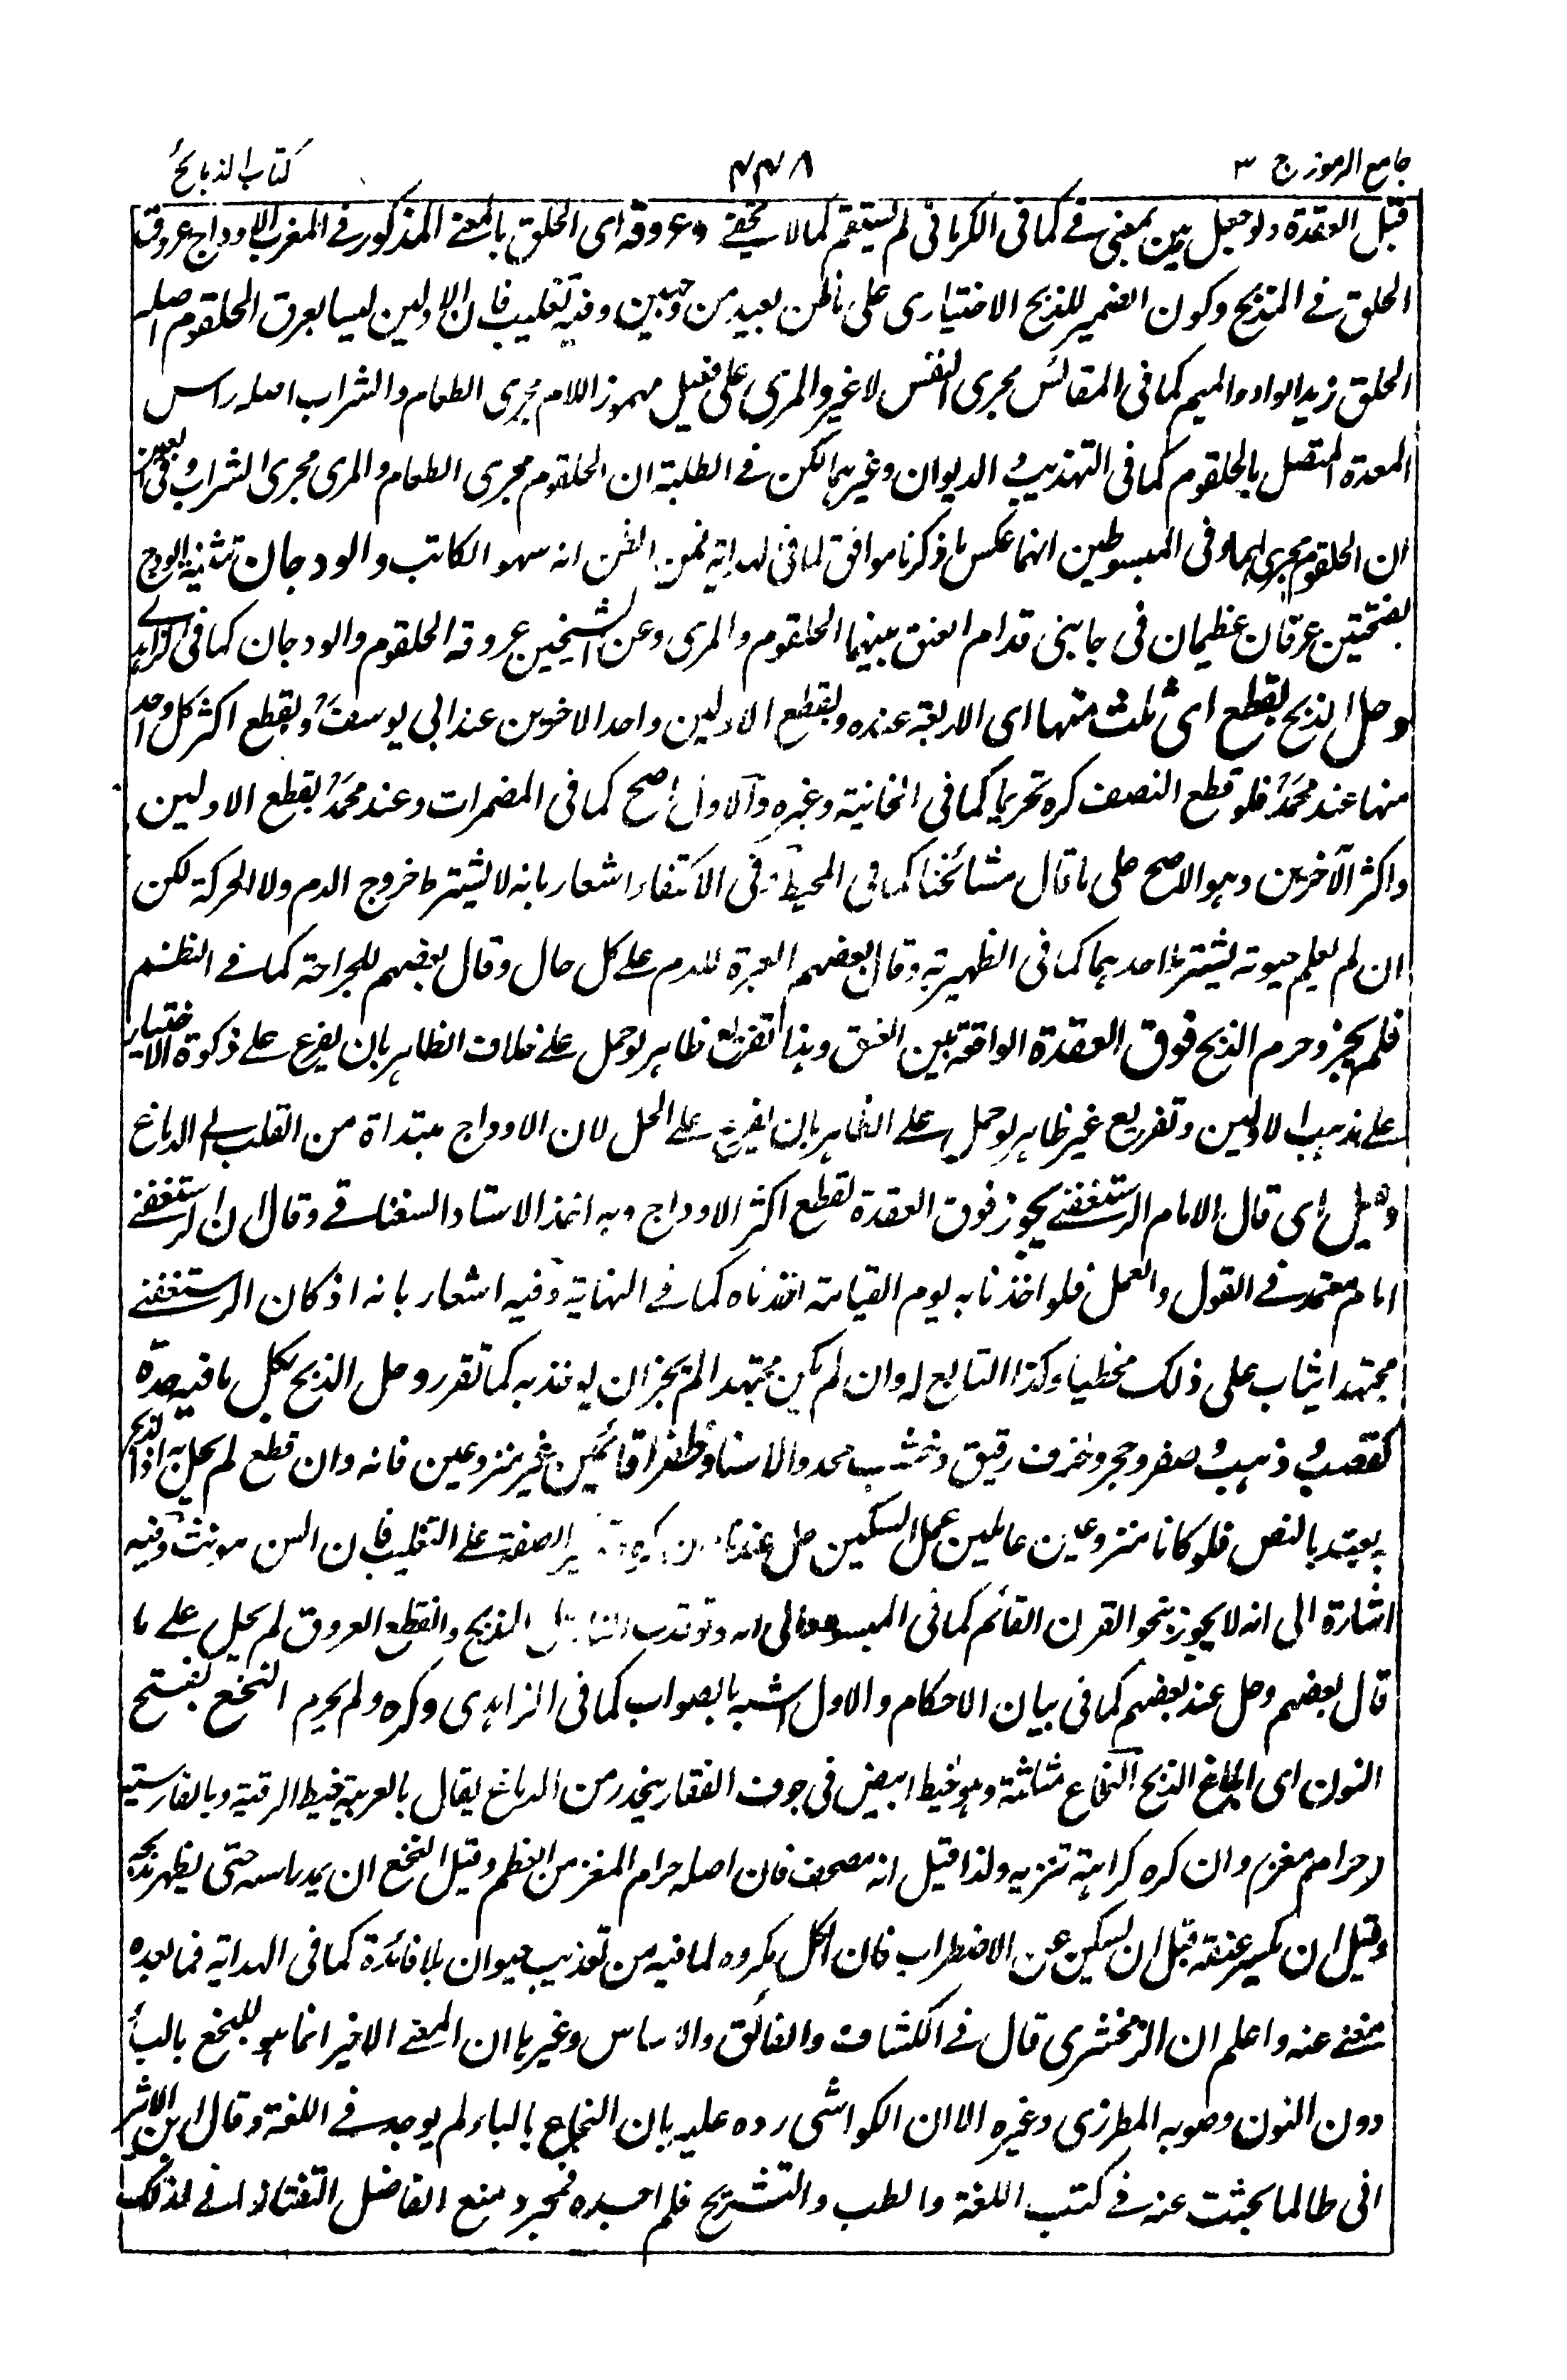 جامع الرموز ج ٣
٤٤٨
كتاب الذبائح
قبل العقدة ولو جعل بين بمعنى في كما في الكرماني لم يستقم كما لا يخفى وعروقه اى الحلق بالمعنى المذكور في المغرب الاوداج عروق
الحلق في المذبح وكون الضمير للذبح الاختيارى على ما ظن بعيد من وجهين وفيه تغليب فان الاولين ليسا بعرق الحلقوم اصله
الحلق زيد الواو والميم كما في المقائس مجرى النفس لا غير والمرى على فعيل مهموز اللام مجرى الطعام والشراب اصله راس
المعدة المتصل بالحلقوم كما في التهذيب والديوان وغيرهما لكن في الطلبة ان الحلقوم مجرى الطعام والمرى مجرى الشراب وفى العين
ان الحلقوم مجريهما وفى المبسوطين انهما عكس ما ذكرنا موافق لما في الهداية فمن الظن انه سهو الكاتب والودجان تثنية الودج
بفتحتين عرقان عظيمان فى جانبى قدام العنق بينهما الحلقوم والمرى وعن الشيخين عروقه الحلقوم والودجان كما فى الزاهدى
وحل الذبح بقطع اى ثلث منها اى الاربعة عنده وبقطع الاولين واحد الاخرين عند ابى يوسفؒ وبقطع اكثر كل واحد
منها عند محمدؒ فلو قطع النصف كره تحريما كما فى الخانية وغيره والاول اصح كما فى المضمرات وعند محمدؒ بقطع الاولين
واكثر الآخرين وهو الاصح على ما قال مشائخنا كما في المحيط وفى الاكتفاء اشعار بانه لا يشترط خروج الدم ولا الحركة لكن
ان لم يعلم حيوته يشترط احدهما كما فى الظهيرية وقال بعضهم العبرة للدم على كل حال وقال بعضهم للجراحة كما في النظم
فلم يجز وحرم الذبح فوق العقدة الواقعة بين العنق وهذا تفريع ظاهر لو حمل على خلاف الظاهر بان يفرع على ذكوة الاختيار
على مذهب الاولين وتفريع غير ظاهر لو حمل على الظاهر بان يفرع على الحل لان الاوداج مبتداة من القلب الى الدماغ
وقيل اى قال الامام الرستغفنى يجوز فوق العقدة لقطع اكثر الاوداج وبه اخذ الاستاد السغناقى وقال ان الرستغفنى
امام معتمد في القول والعمل فلو اخذنا به يوم القيامة اخذناه كما في النهاية وفيه اشعار بانه اذ كان الرستغفنى
مجتهدا يثاب على ذلك مخطيا وكذا التابع له وان لم يكن مجتهدا لم يجز ان يوخذ به كما تقرر وحل الذبح بكل ما فيه حدة
كقصب وذهب وصفر وحجر وخزف رقيق وخشب محدد الا سنا وظفرا قائمين غير منزوعين فانه وان قطع لم يحل به اذا الذبح
يعتد بالنص فلو كانا منزوعين عاملين عمل السكين حل عندنا الصفة على التغليب فان السن مونث وفيه
اشارة الى انه لا يجوز بنحو القرن القائم كما فى المبسوط والى انه المذبح وانقطع العروق لم يحل على ما
قال بعضهم وحل عند بعضهم كما فى بيان الاحكام والاول اشبه بالصواب كما فى الزاهدى وكره ولم يحرم النخع بفتح
النون اى ابلاغ الذبح النخاع مثلثة وهو خيط ابيض فى جوف الفقار ينحدر من الدماغ يقال بالعربية خيط الرقبة وبالفارسية
(حرام مغز) وان كره كراهة تنزيه ولذا قيل انه مصحف فان اصله حرام المغز من العظم وقيل النخع ان يمد راسه حتى يظهر مذبحه
وقيل ان يكسر عنقه قبل ان يسكن عن الاضطراب فان الكل مكروه لما فيه من تعذيب حيوان بلا فائدة كما فى الهداية فما بعده
مغنى عنه واعلم ان الزمخشرى قال في الكشاف والفائق والاساس وغيرها ان المعنى الاخير انما هو للبخع بالباء
دون النون وصوبه المطرزى وغيره الا ان الكواشى رده عليه بان البخاع بالباء لم يوجد في اللغة وقال ابن الاثير
انى طالما بحثت عنه في كتب اللغة والطب والتشريح فلم اجده فمجرد منع الفاضل التفتازانى لذلك